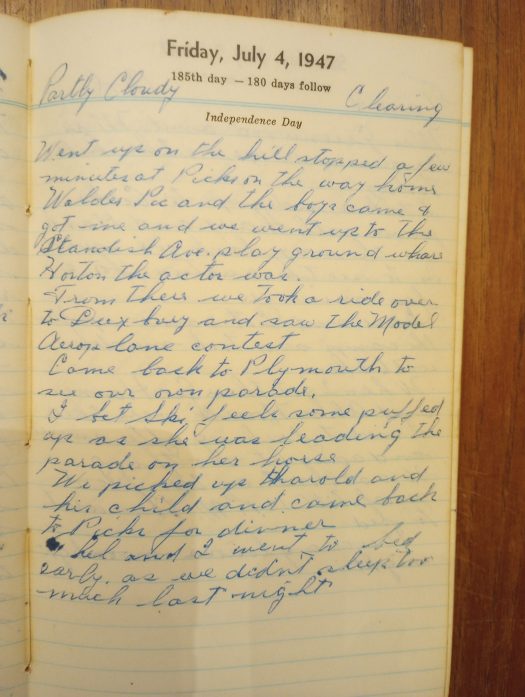 Friday, July 4, 1947
185th day — 180 days follow
Partly Cloudy Clearing
Independence Day
Went up on the hill stopped a few
minutes at Picks on the way home
Waldes Pic and the boys came &
got me and we went up to the
Standish Ave. play ground whare
Horton the actor was.
From there we took a ride over
to Duxbury and saw the Model
Aeroplane contest
Came back to Plymouth to
see our own parade.
I bet Ski feels some puffed
up as she was leading the
parade on her horse
We picked up Harold and
his child and came back
to Picks for dinner
hel and I went to bed
early. as we didn't sleep too
much last night